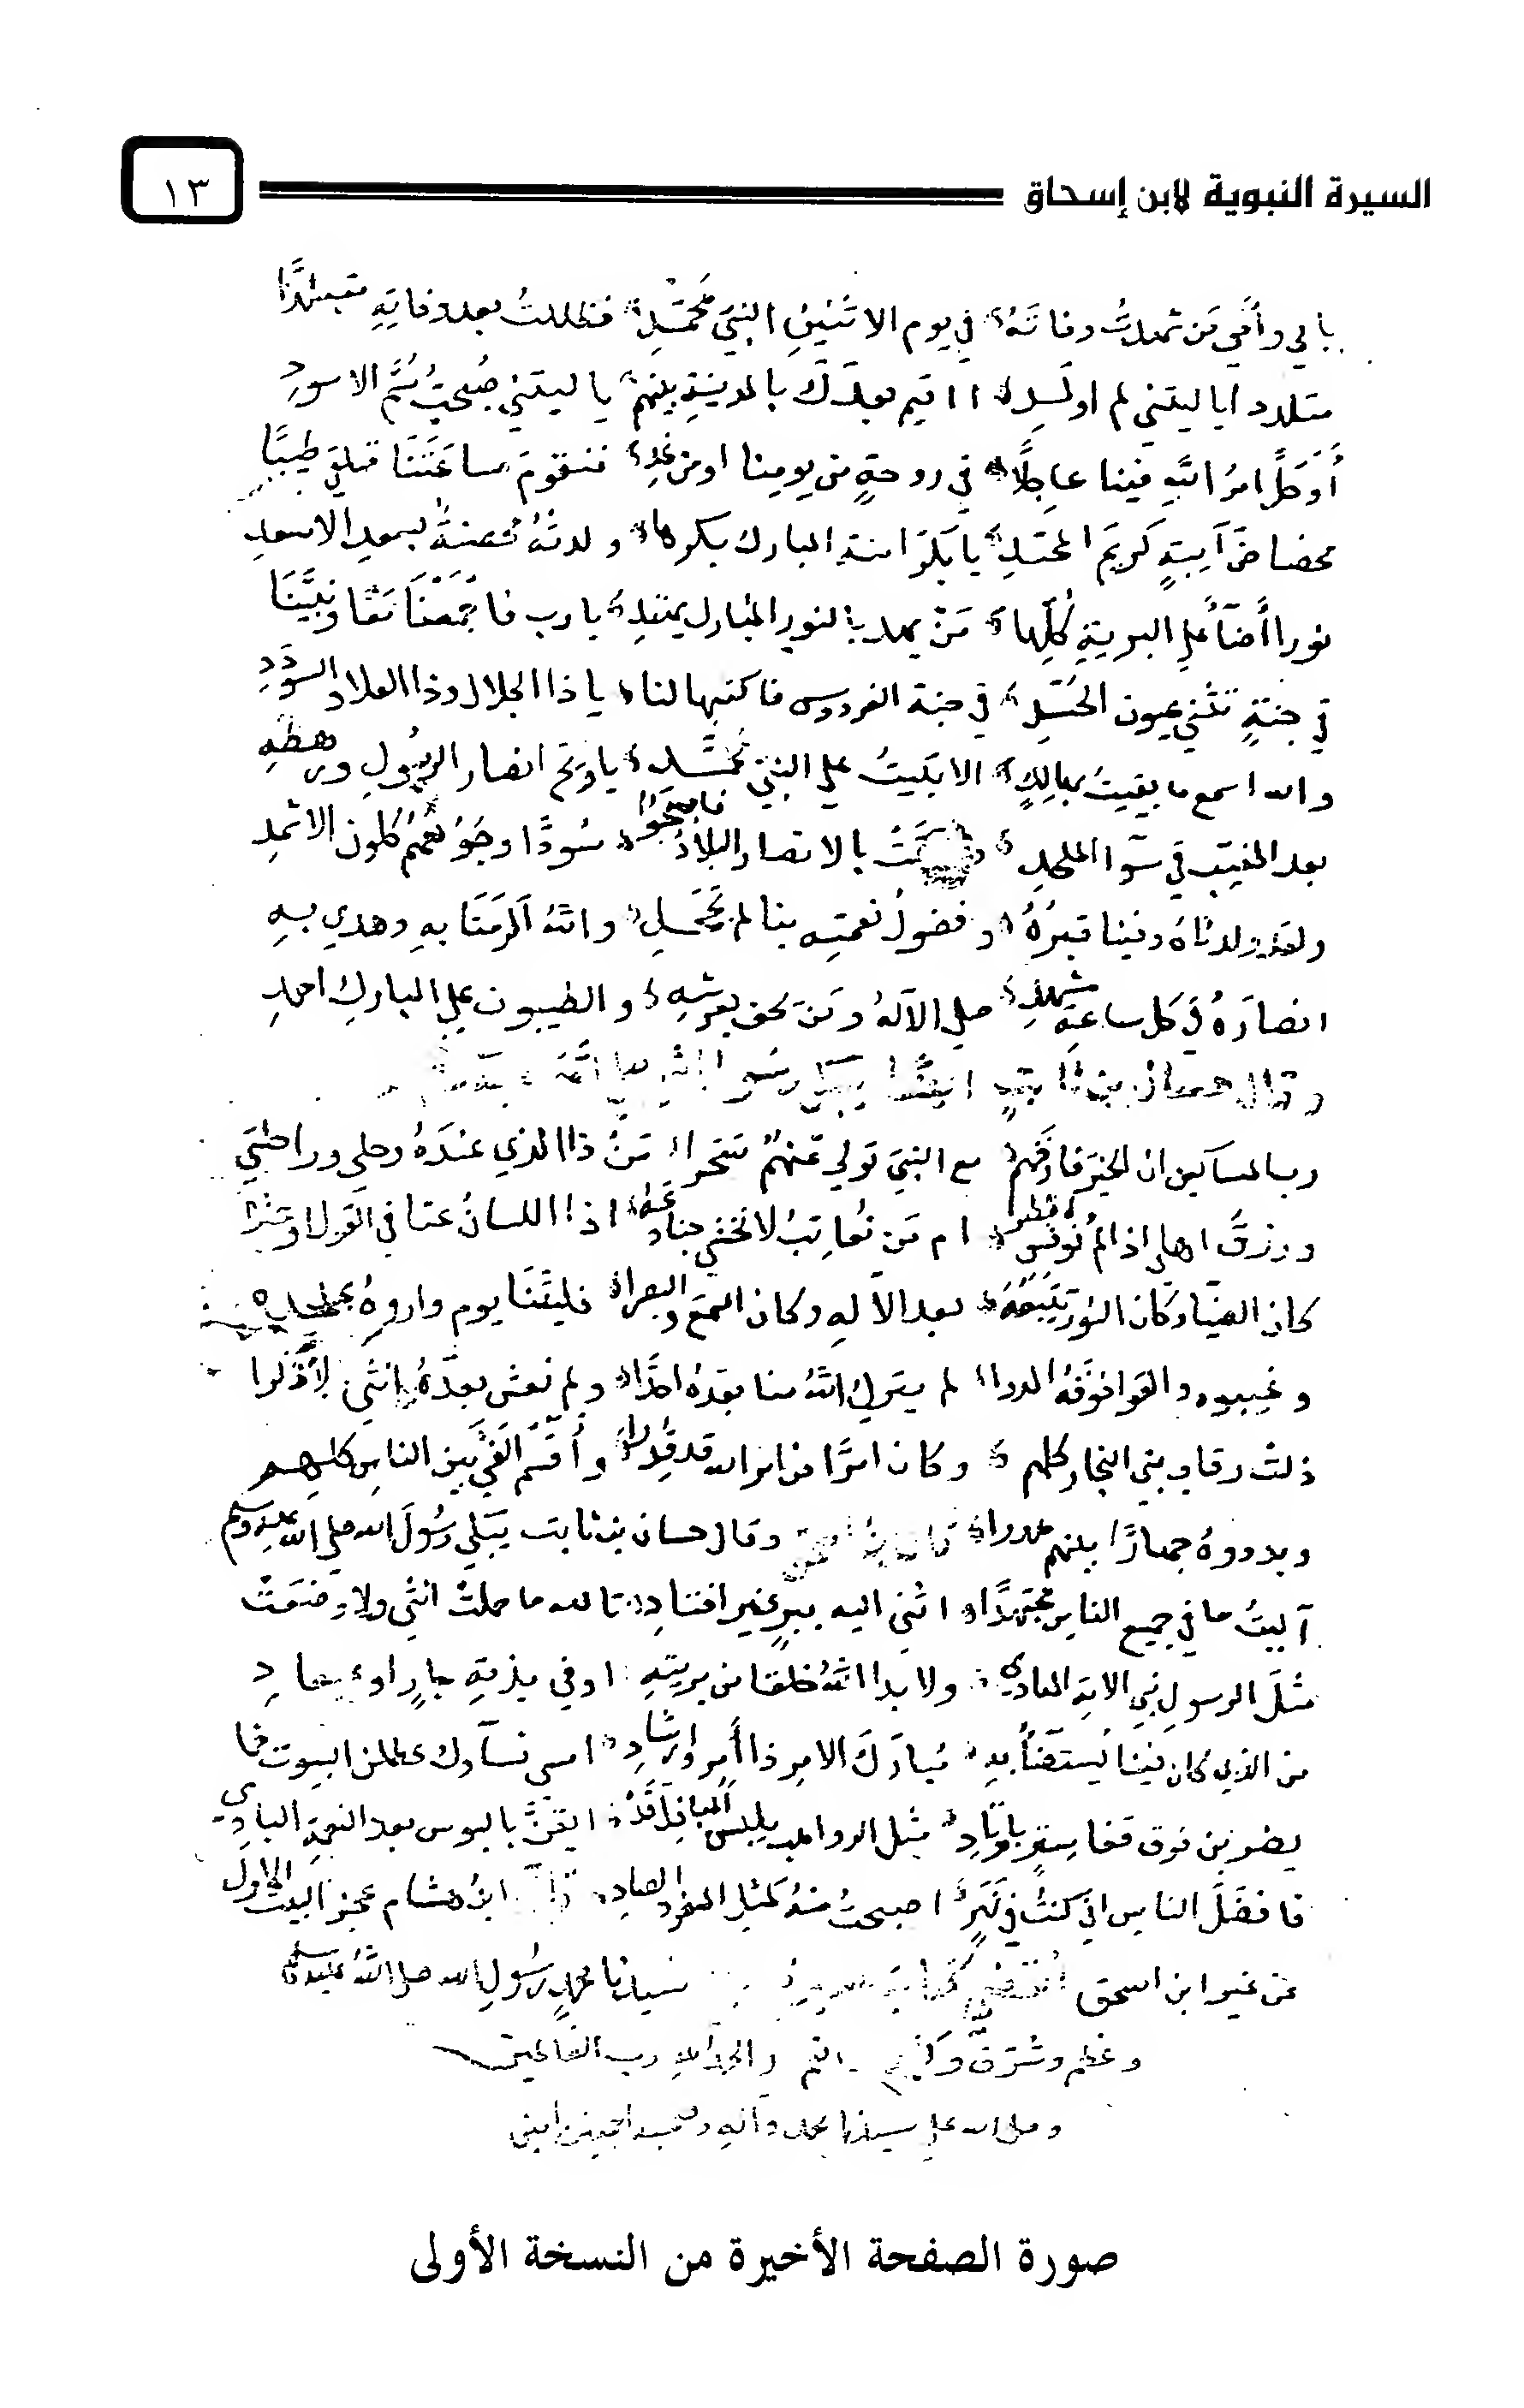 السيرة النبوية لابن إسحاق
١٣
بابي وأمي من شهدت وفاته في يوم الاثنين النبي فظللت بعد وفاته متبلدًا
متلددا ياليتني لم اولد أاقيم بعدك بالمدينة بينهم ياليتني صبحت سم الاسود
أو حل امر الله فينا عاجلًا في روحة من يومنا او من غد فنقوم ساعتنا فنلق طيبًا
محضا كريم المحتد يا بكر امنة المبارك بكرها ولدته محصنة بسعد الاسعد
نورا أضآ على البرية كلها من يهد للنور المبارك يهتد يا رب فاجمعنا معًا ونبينا
في جنة تثني عيون الحسد في جنة الفردوس فاكتبها لنا يا ذا الجلال وذا العلا والسودد
والله اسمع ما بقيت بهالك الا بكيت على النبي محمد يا ويح انصار الرسول ورهطه
بعد المغيب في سوآ الملحد بالانصار البلاد فاصبحوا سودًا وجوههم كلون الاثمد
ولقد ولدناه وفينا قبره وفضول نعمته بنا لم تجحد والله اكرمنا به وهدي به
انصاره في كل ساعة مشهد صلي الاله ومن يحف بعرشه والطيبون على المبارك احمد
وقال حسان بن ثابت ايضًا يبكي رسول الله
المساكين ان الخير فارقهم مع النبي تولي عنهم سحرا من ذا الذي عنده رحلي وراحلتي
ورزق اهلي اذا لم يونسوا المطرا ام من نعاتب لا نخشي جنادعه اذا اللسان عتا في القول او عثرا
كان الضيا وكان النور نتبعه بعد الاله وكان السمع والبصرا فليتنا يوم واروه بملحده
وغيبوه والقوا فوقه المدرا لم يترك الله منا بعده احدًا ولم يعش بعده انثي ولا ذكرا
ذلت رقاب بني النجار كلهم وكان امرًا من امر الله قد قدرا واقتسم الفي بين الناس كلهم
وبددوه جهارًا بينهم هدرا وقال حسان بن ثابت يبكي رسول الله صلي الله عليه وسلم
آليت ما في جميع الناس مجتهدًا اثني اليه ببر غير افناد تالله ما حملت انثي ولا وضعت
مثل الرسول نبي الامة الهادي ولا برا الله خلقا من بريته اوفي بذمة جار او بميعاد
من الذي كان فينا يستضآ به مبارك الامر ذا وارشاد امسي نسآوك عطلن البيوت فما
يضربن فوق قفا ستر باوتاد مثل الرواهب يلبسن المباذل قد ايقن بالبوس بعد النعمة البادي
يا افضل الناس اني كنت في نهر اصبحت منه كمثل المفرد الصادي قال ابن هشام عجز البيت الاول
عن غير ابن اسحق سيدنا محمد رسول الله صلى الله عليه وسلم
وعظم وشرف والحمد لله رب العالمين
وصلى الله على سيدنا محمد وآله وصحبه اجمعين
صورة الصفحة الأخيرة من النسخة الأولى